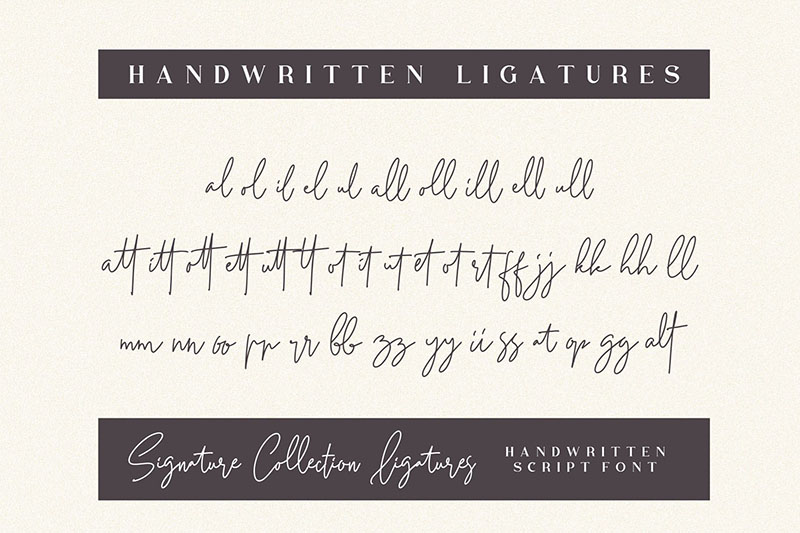 HANDWRITTEN LIGATURES
al ol il el ul all oll ill ell ull
att itt ott ett utt tt ot it ut et ot rt ff jj kk hh ll
mm nn oo pp rr bb zz yy ii ss at op gg alt
Signature Collection Ligatures
HANDWRITTEN
SCRIPT FONT